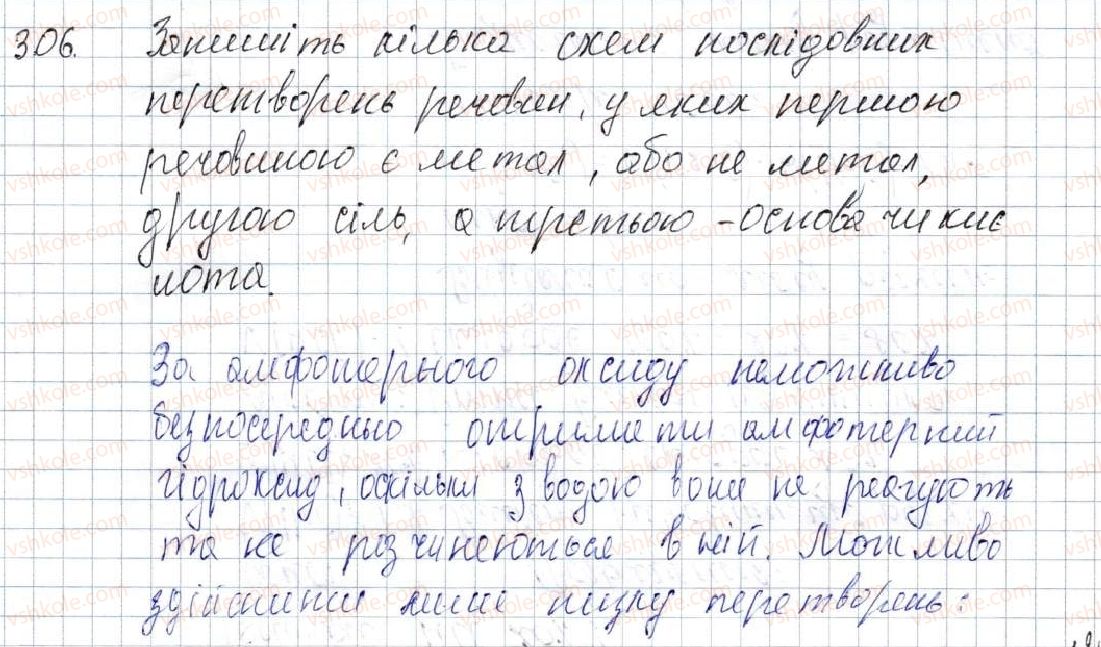 306. Запишіть кілька схем послідовних
перетворень речовин, у яких першою
речовиною є метал, або не метал,
другою сіль, а третьою - основа чи кис
лота.
За амфотерного оксиду неможливо
безпосередньо отримати амфотерний
гідроксид, оскільки з водою вони не реагують
та не розчиняються в ній. Можливо
здійснити лише низку перетворень: